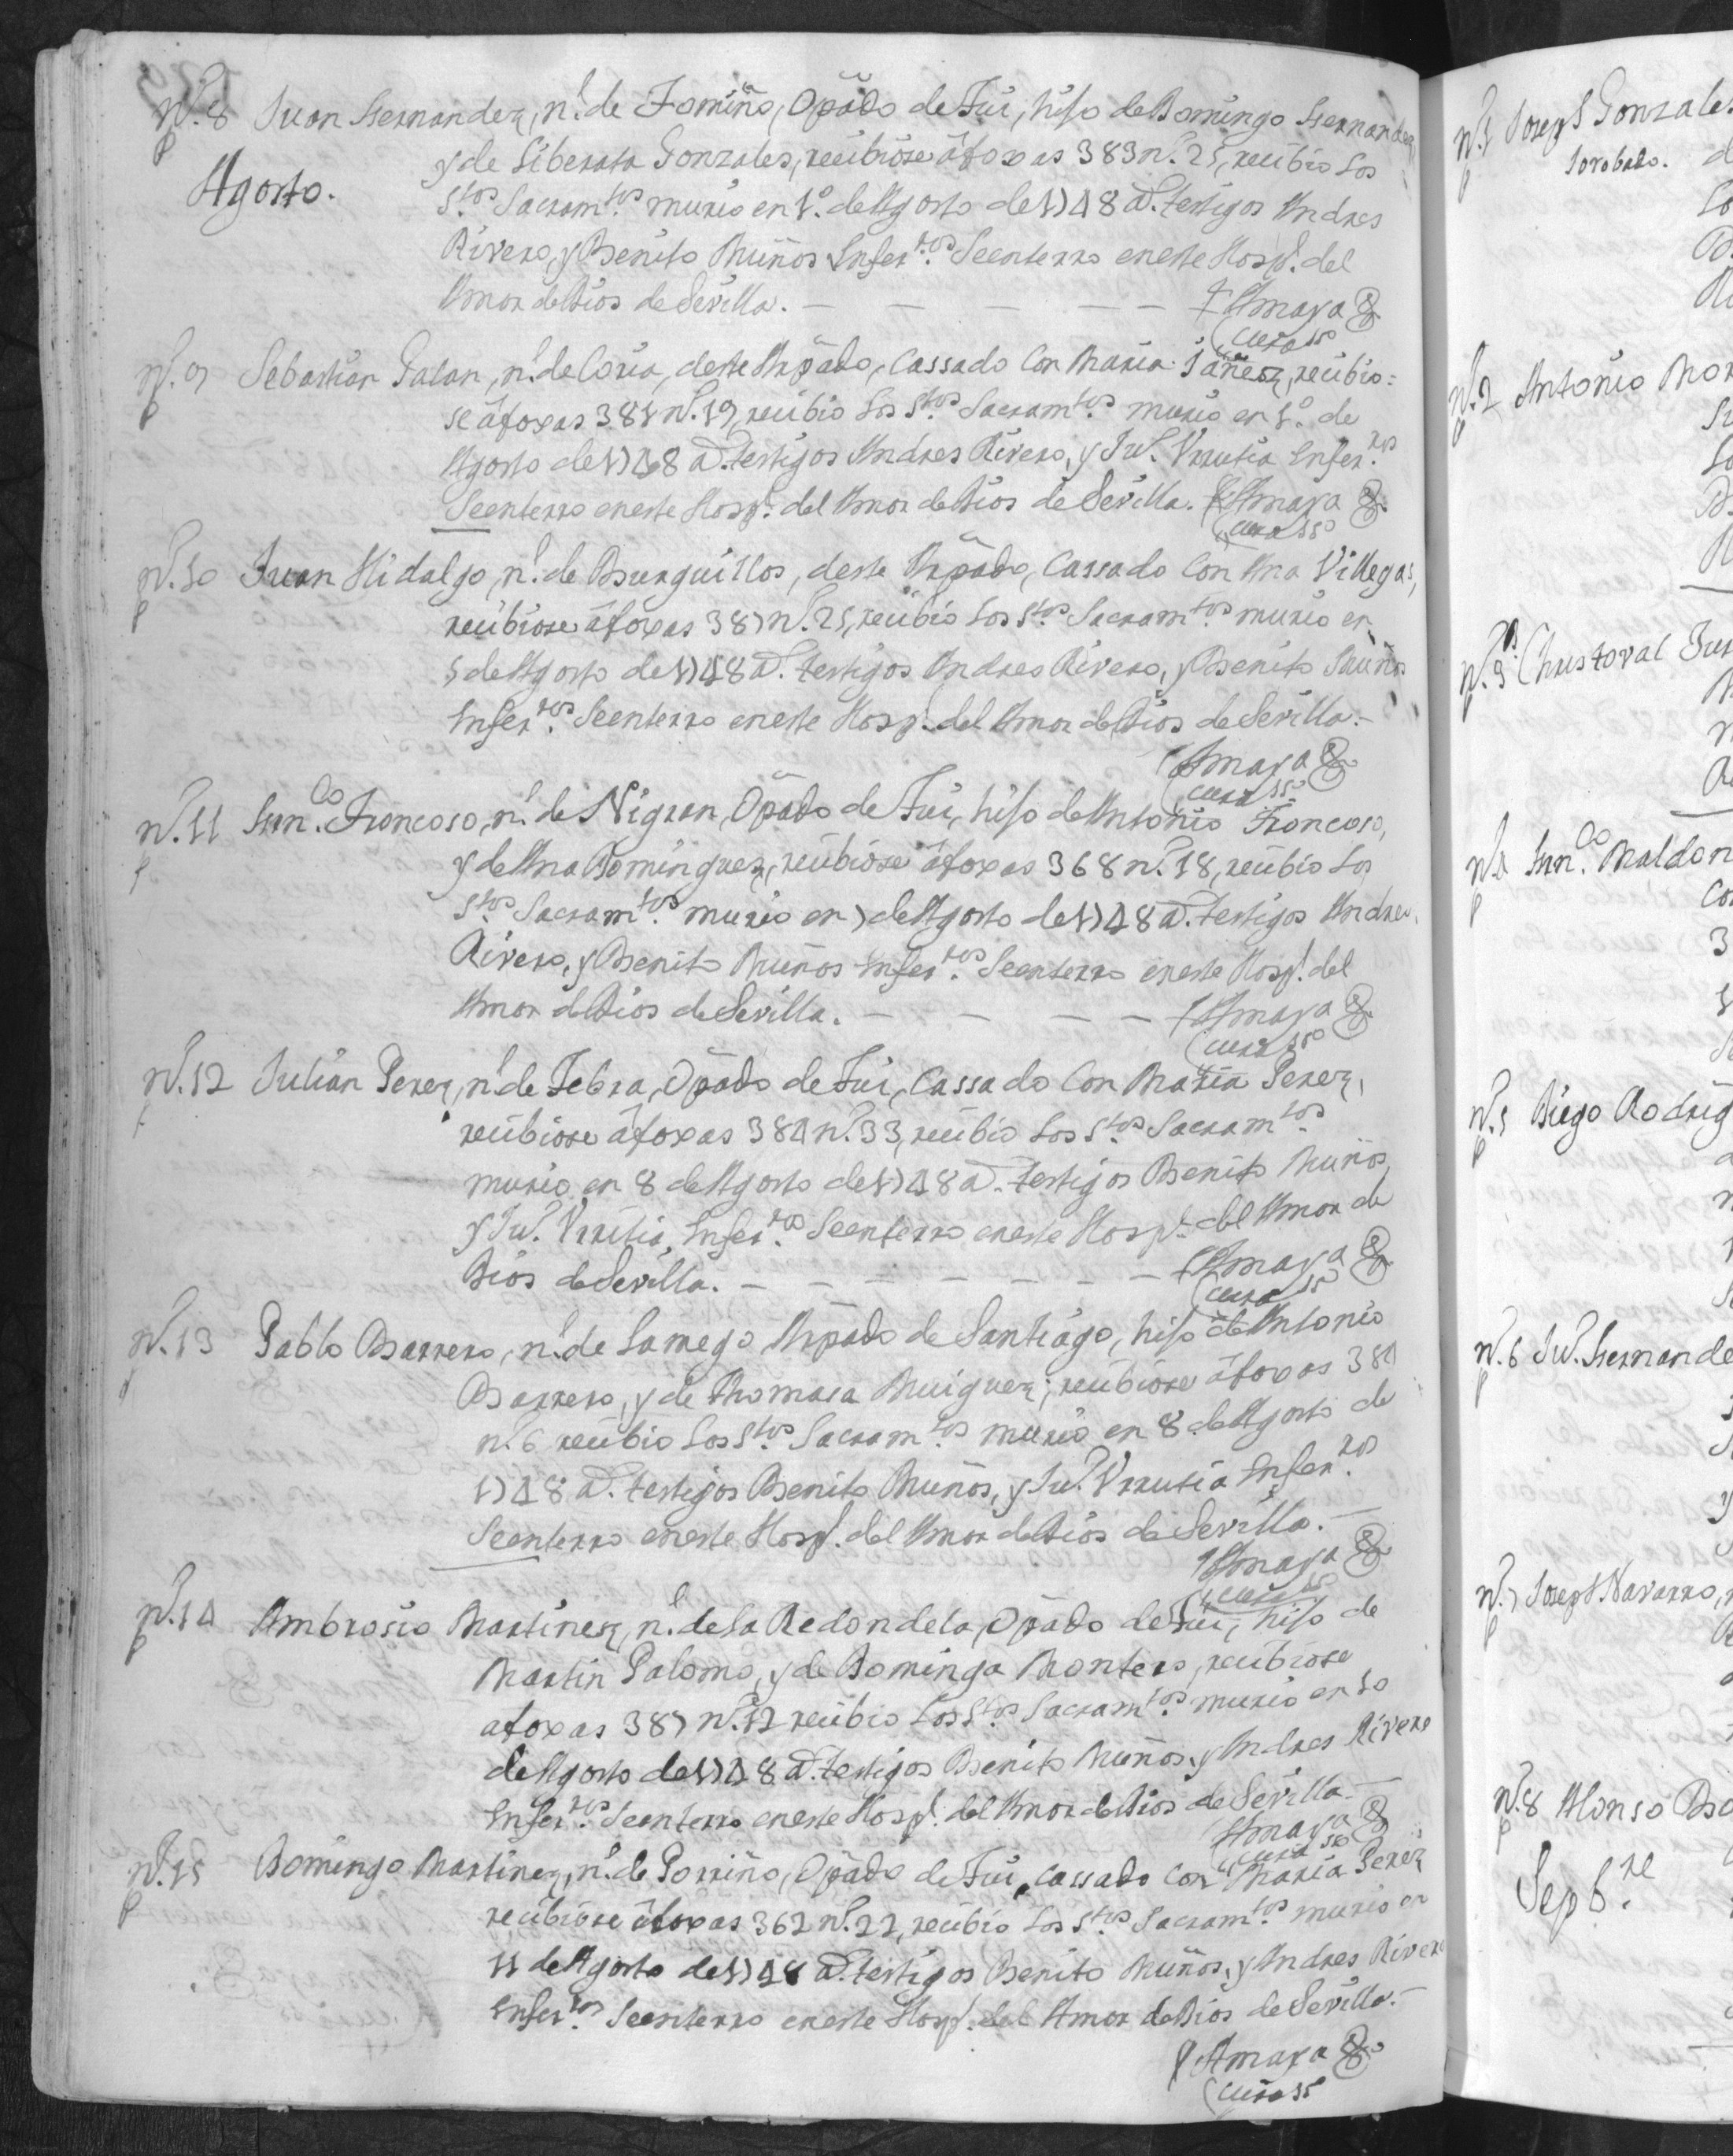 N.º 8 Juan Hernandez, n.l de Tomiño, Opãdo de Tui, hijo de Domingo Hernandez
y de Liberata Gonzales, recibiose â foxas 383 n.º 25, recibio los
Agosto.
S.tos Sacram.tos murio en 1.º de Agosto de 1748 a.s testigos Andres
Rivero, y Benito Muños Enfer.ros Se enterro en este Hosp.l del
Amor de Dios de Sevilla. — — — — — Amaya
Cura
N.º 9 Sebastian Galan, n.l de Coria, deste Arpãdo, Cassado Con Maria Iañez, recibio=
se â foxas 381 n.º 19, recibio los S.tos Sacram.tos murio en 1.º de
Agosto de 1748 a.s testigos Andres Rivero, y Ju.º Vrrutia Enfer.ros
Se enterro en este Hosp.l del Amor de Dios de Sevilla. Amaya
Cura
N.º 10 Juan Hidalgo, n.l de Burguillos, deste Arpãdo, Cassado Con Ana Villegas,
recibiose â foxas 387 n.º 25, recibio los S.tos Sacram.tos murio en
5 de Agosto de 1748 a.s testigos Andres Rivero, y Benito Muños
Enfer.ros Se enterro en este Hosp.l del Amor de Dios de Sevilla.—
Amaya
Cura
N.º 11 Fran.co Troncoso, n.l de Nigran, Opãdo de Tui, hijo de Antonio Troncoso,
y de Ana Dominguez, recibiose â foxas 368 n.º 18, recibio los
S.tos Sacram.tos murio en 7 de Agosto de 1748 a.s testigos Andres
Rivero, y Benito Muños Enfer.ros Se enterro en este Hosp.l del
Amor de Dios de Sevilla. — — — — Amaya
Cura
N.º 12 Julian Perez, n.l de Tebra, Opãdo de Tui, Cassado Con Maria Perez,
recibiose â foxas 384 n.º 33, recibio los S.tos Sacram.tos
murio en 8 de Agosto de 1748 a.s testigos Benito Muños,
y Ju.º Vrrutia Enfer.ros Se enterro en este Hosp.l del Amor de
Dios de Sevilla. — — — — — — — Amaya
Cura
N.º 13 Pablo Barrero, n.l de Lamego Arpãdo de Santiago, hijo de Antonio
Barrero, y de Thomasa Muiguez; recibiose â foxas 384
n.º 6 recibio los S.tos Sacram.tos murio en 8 de Agosto de
1748 a.s testigos Benito Muños, y Ju.º Vrrutia Enfer.ros
Se enterro en este Hosp.l del Amor de Dios de Sevilla.—
Amaya
Cura
N.º 14 Ambrosio Martinez, n.l de la Redondela, Opãdo de Tui, hijo de
Martin Palomo, y de Dominga Montero, recibiose
a foxas 387 n.º 12 recibio los S.tos Sacram.tos murio en 10
de Agosto de 1748 a.s testigos Benito Muños, y Andres Rivero
Enfer.ros Se enterro en este Hosp.l del Amor de Dios de Sevilla.—
Amaya
Cura
N.º 15 Domingo Martinez, n.l de Porriño, Opãdo de Tui, cassado con Maria Perez
recibiose â foxas 362 n.º 22, recibio los S.tos Sacram.tos murio en
11 de Agosto de 1748 a.s testigos Benito Muños, y Andres Rivero
Enfer.ros Se enterro en este Hosp.l del Amor de Dios de Sevilla.—
Amaya
Cura
N.º 1 Joseph Gonzales
N.º 2 Antonio
N.º 3 Christoval
N.º 4 Fran.co Maldon
N.º 5 Diego Rodrig
N.º 6 Ju.º Hernande
N.º 7 Joseph Navarro,
N.º 8 Alonso
Sepb.re